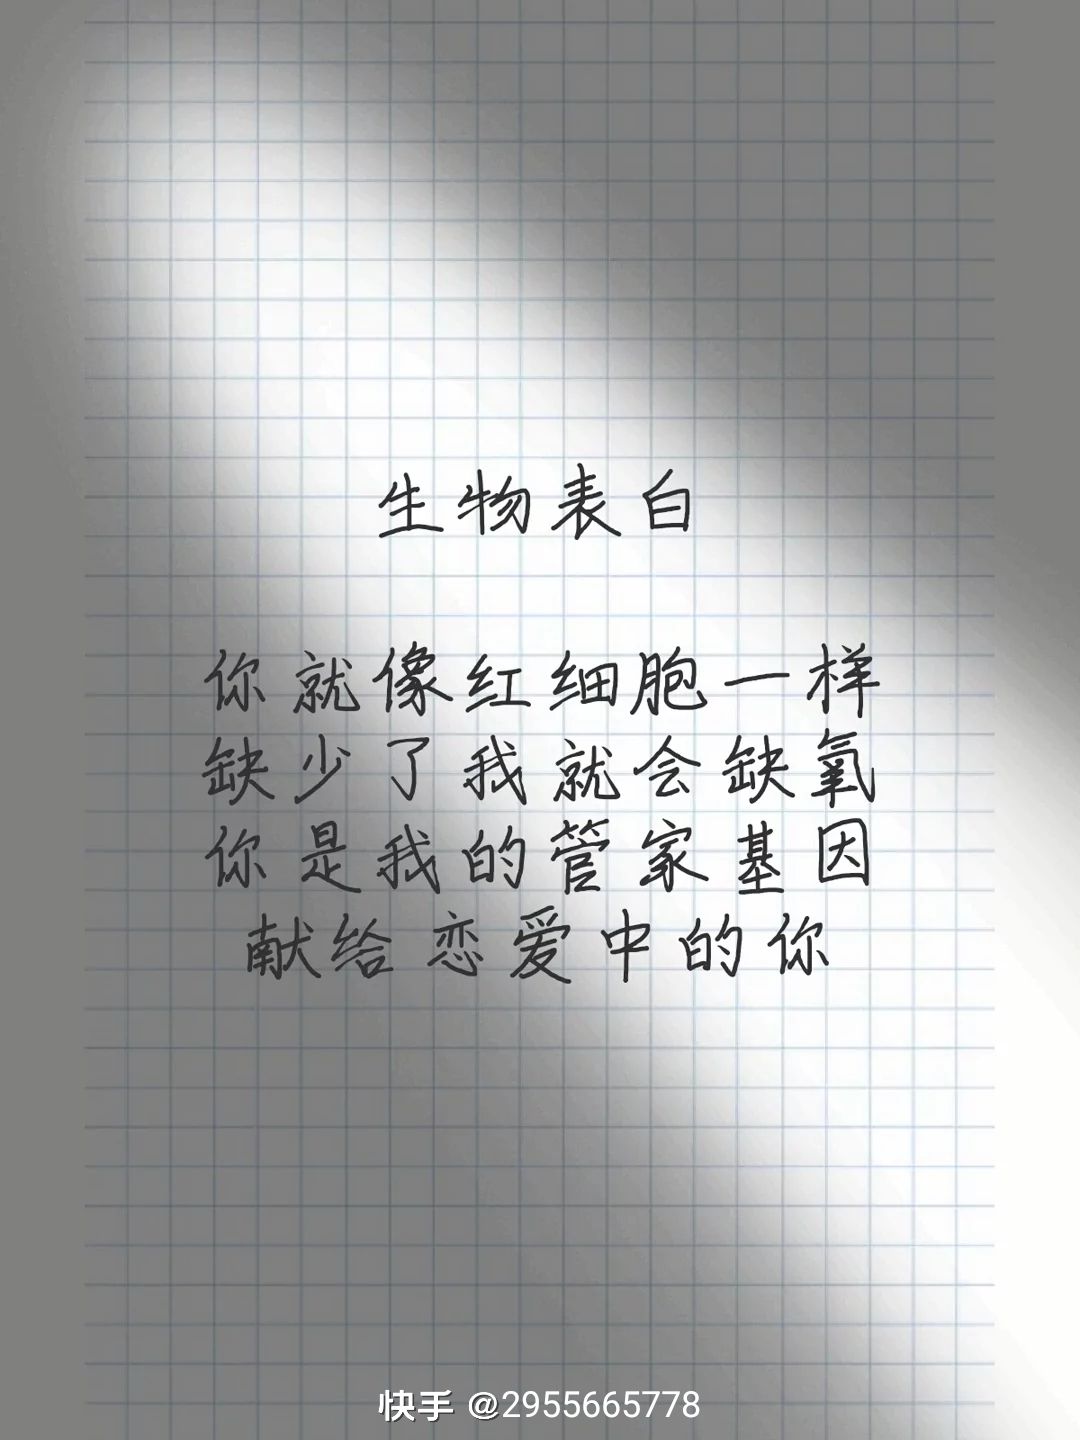 生物表白
你就像红细胞一样
缺少了我就会缺氧
你是我的管家基因
献给恋爱中的你
快手 @2955665778